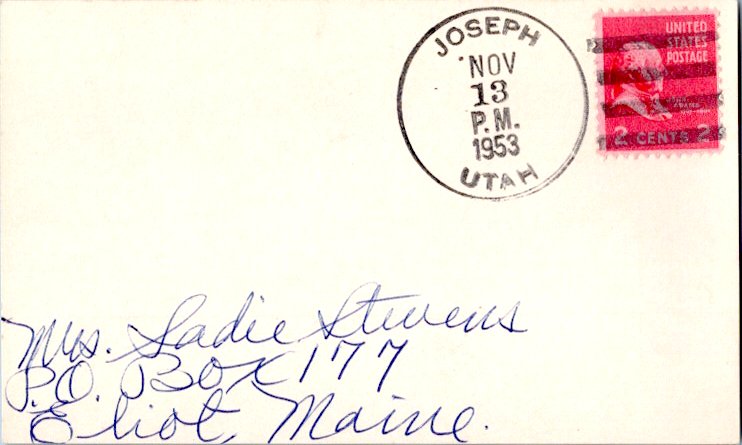 JOSEPH
NOV
13
P.M.
1953
UTAH
UNITED
STATES
POSTAGE
JOHN
ADAMS
2 CENTS 2
Mrs. Sadie Stevens
P.O. Box 177
Eliot, Maine.